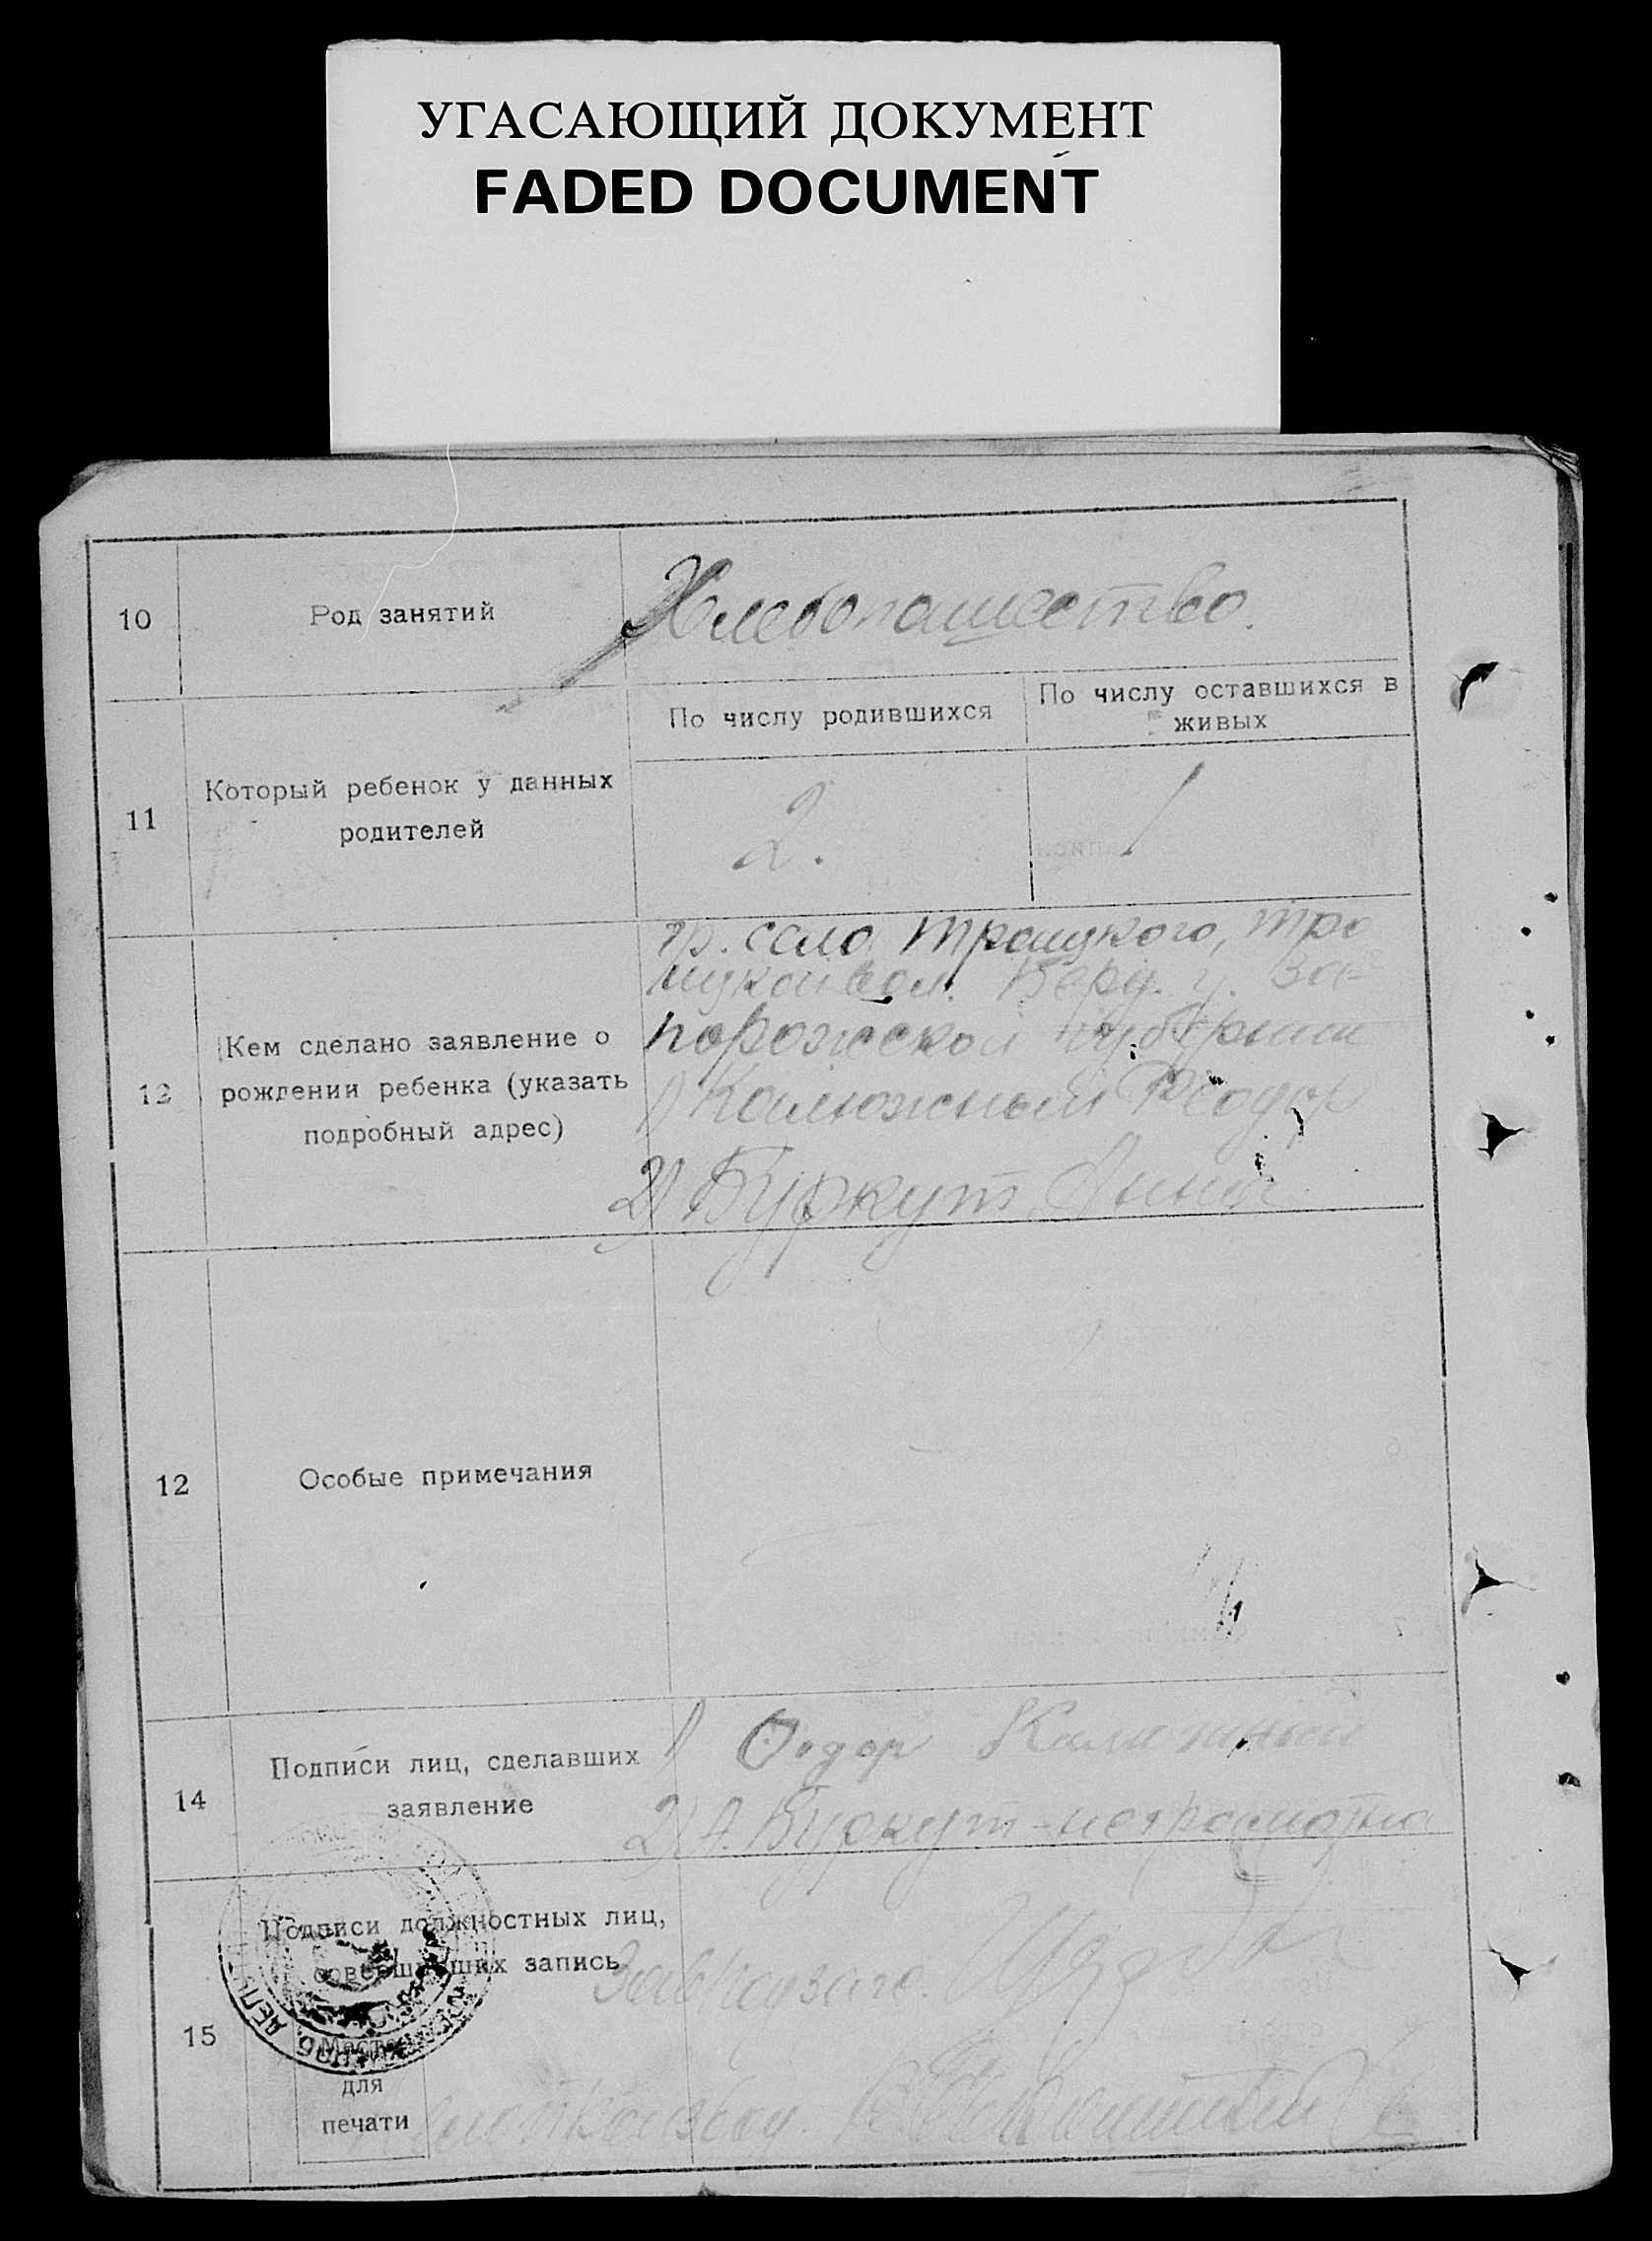 УГАСАЮЩИЙ ДОКУМЕНТ
FADED DOCUMENT
10
Род занятий
Хлебопашество.
11
Который ребенок у данных
родителей
По числу родившихся
По числу оставшихся в
живых
2.
1
12
Кем сделано заявление о
рождении ребенка (указать
подробный адрес)
гр. села Троицкого, Тро
ицкой вол. Берд. у. За-
порожской губернии
1) Калюжный Феодор
2) Буркут Анна
12
Особые примечания
14
Подписи лиц, сделавших
заявление
1) Калюжный
2) А. Буркут - неграмотна
15
Подписи должностных лиц,
совершивших запись
Место
для
печати